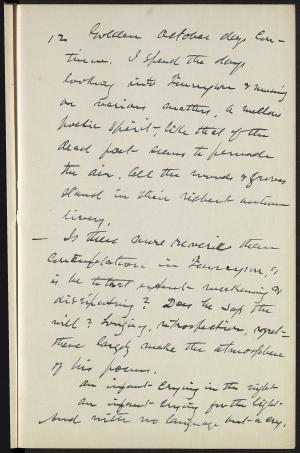 12 Golden October days con-
tinue. I spend the days
looking into Tennyson & musing
on various matters. A mellow
poetic spirit - like that of the
dead poet seems to pervade
the air. All the woods & groves
stand in their richest autumn
livery.
— Is there more reverie than
contemplation in Tennyson, &
is he to that extent weakening &
dissipating? Does he sap the
will? Longing, retrospection, regret-
these largely make the atmosphere
of his poems.
An infant crying in the night
An infant crying for the light-
And with no language but a cry.